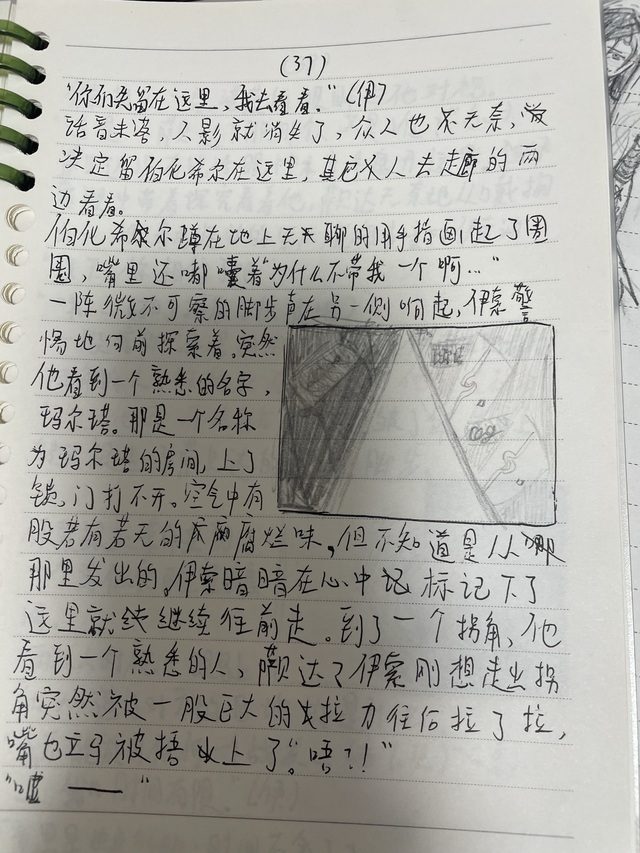 (37)
"你们先留在这里，我去看看。"（伊）
话音未落，人影就消失了，众人也很无奈，
决定留伯化希尔在这里，其它人去走廊的两
边看看。
伯化希尔蹲在地上无聊的用手指画起了圈
圈，嘴里还嘟囔着"为什么不带我一个啊…"
一阵微不可察的脚步声在另一侧响起，伊索警
惕地向前探索着。突然
他看到一个熟悉的名字，
玛尔塔。那是一个名称
为玛尔塔的房间，上了
锁，门打不开。空气中有
股若有若无的腐烂味。但不知道是从哪
那里发出的。伊索暗暗在心中记标记下了
这里就继续往前走。到了一个拐角，他
看到一个熟悉的人，范达了伊索刚想走出拐
角突然被一股巨大的拉力往后拉了拉，
嘴也立马被捂上了。"唔？！"
"嘘——"